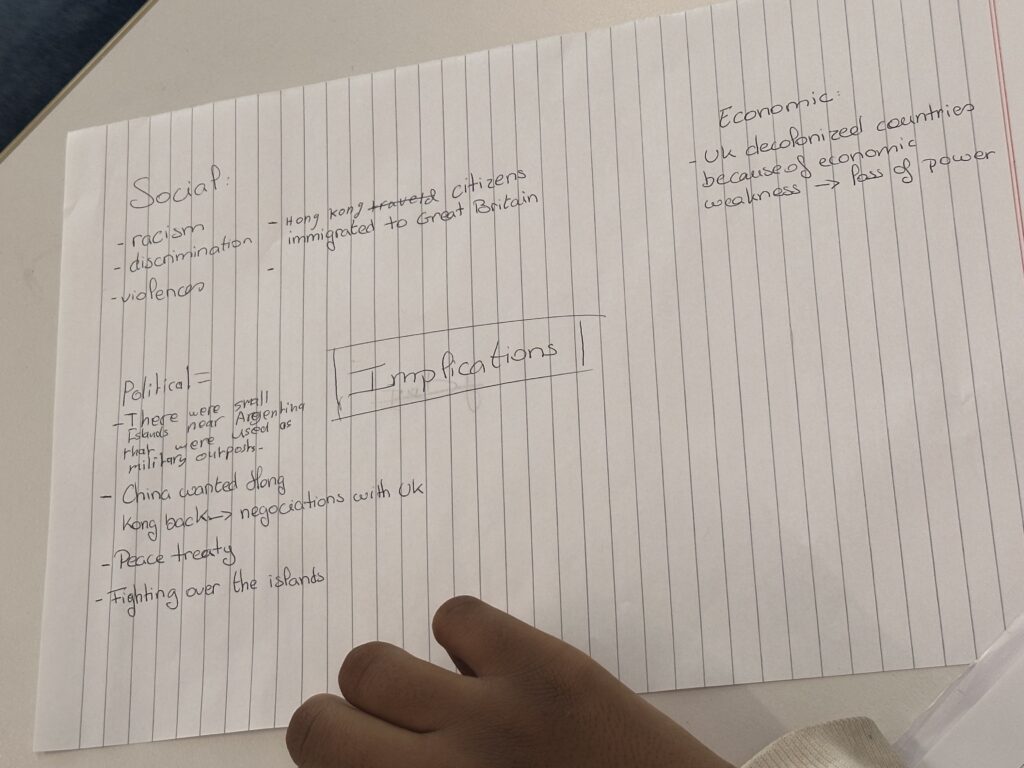 Social:
- racism
- discrimination
- violences
- Hong Kong traveld citizens
immigrated to Great Britain
-
Economic:
- Uk decolonized countries
because of economic
weakness → loss of power
Implications
Political =
- There were small
Islands near Argentina
that were used as
military outposts.
- China wanted Hong
Kong back → negociations with Uk
- Peace treaty
- Fighting over the islands